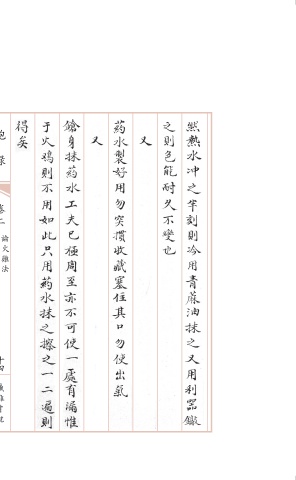 然熱水冲之半刻則冷用青蔴油抹之又用利器鐵
之則色能耐久不變也
又
葯水製好用勿突摜收藏塞住其口勿使出氣
又
鎗身抹葯水工夫已極周至亦不可使一處有漏惟
于火鸡則不用如此只用葯水抹之擦之一二遍則
得矣
卷二
論火雜法
十四